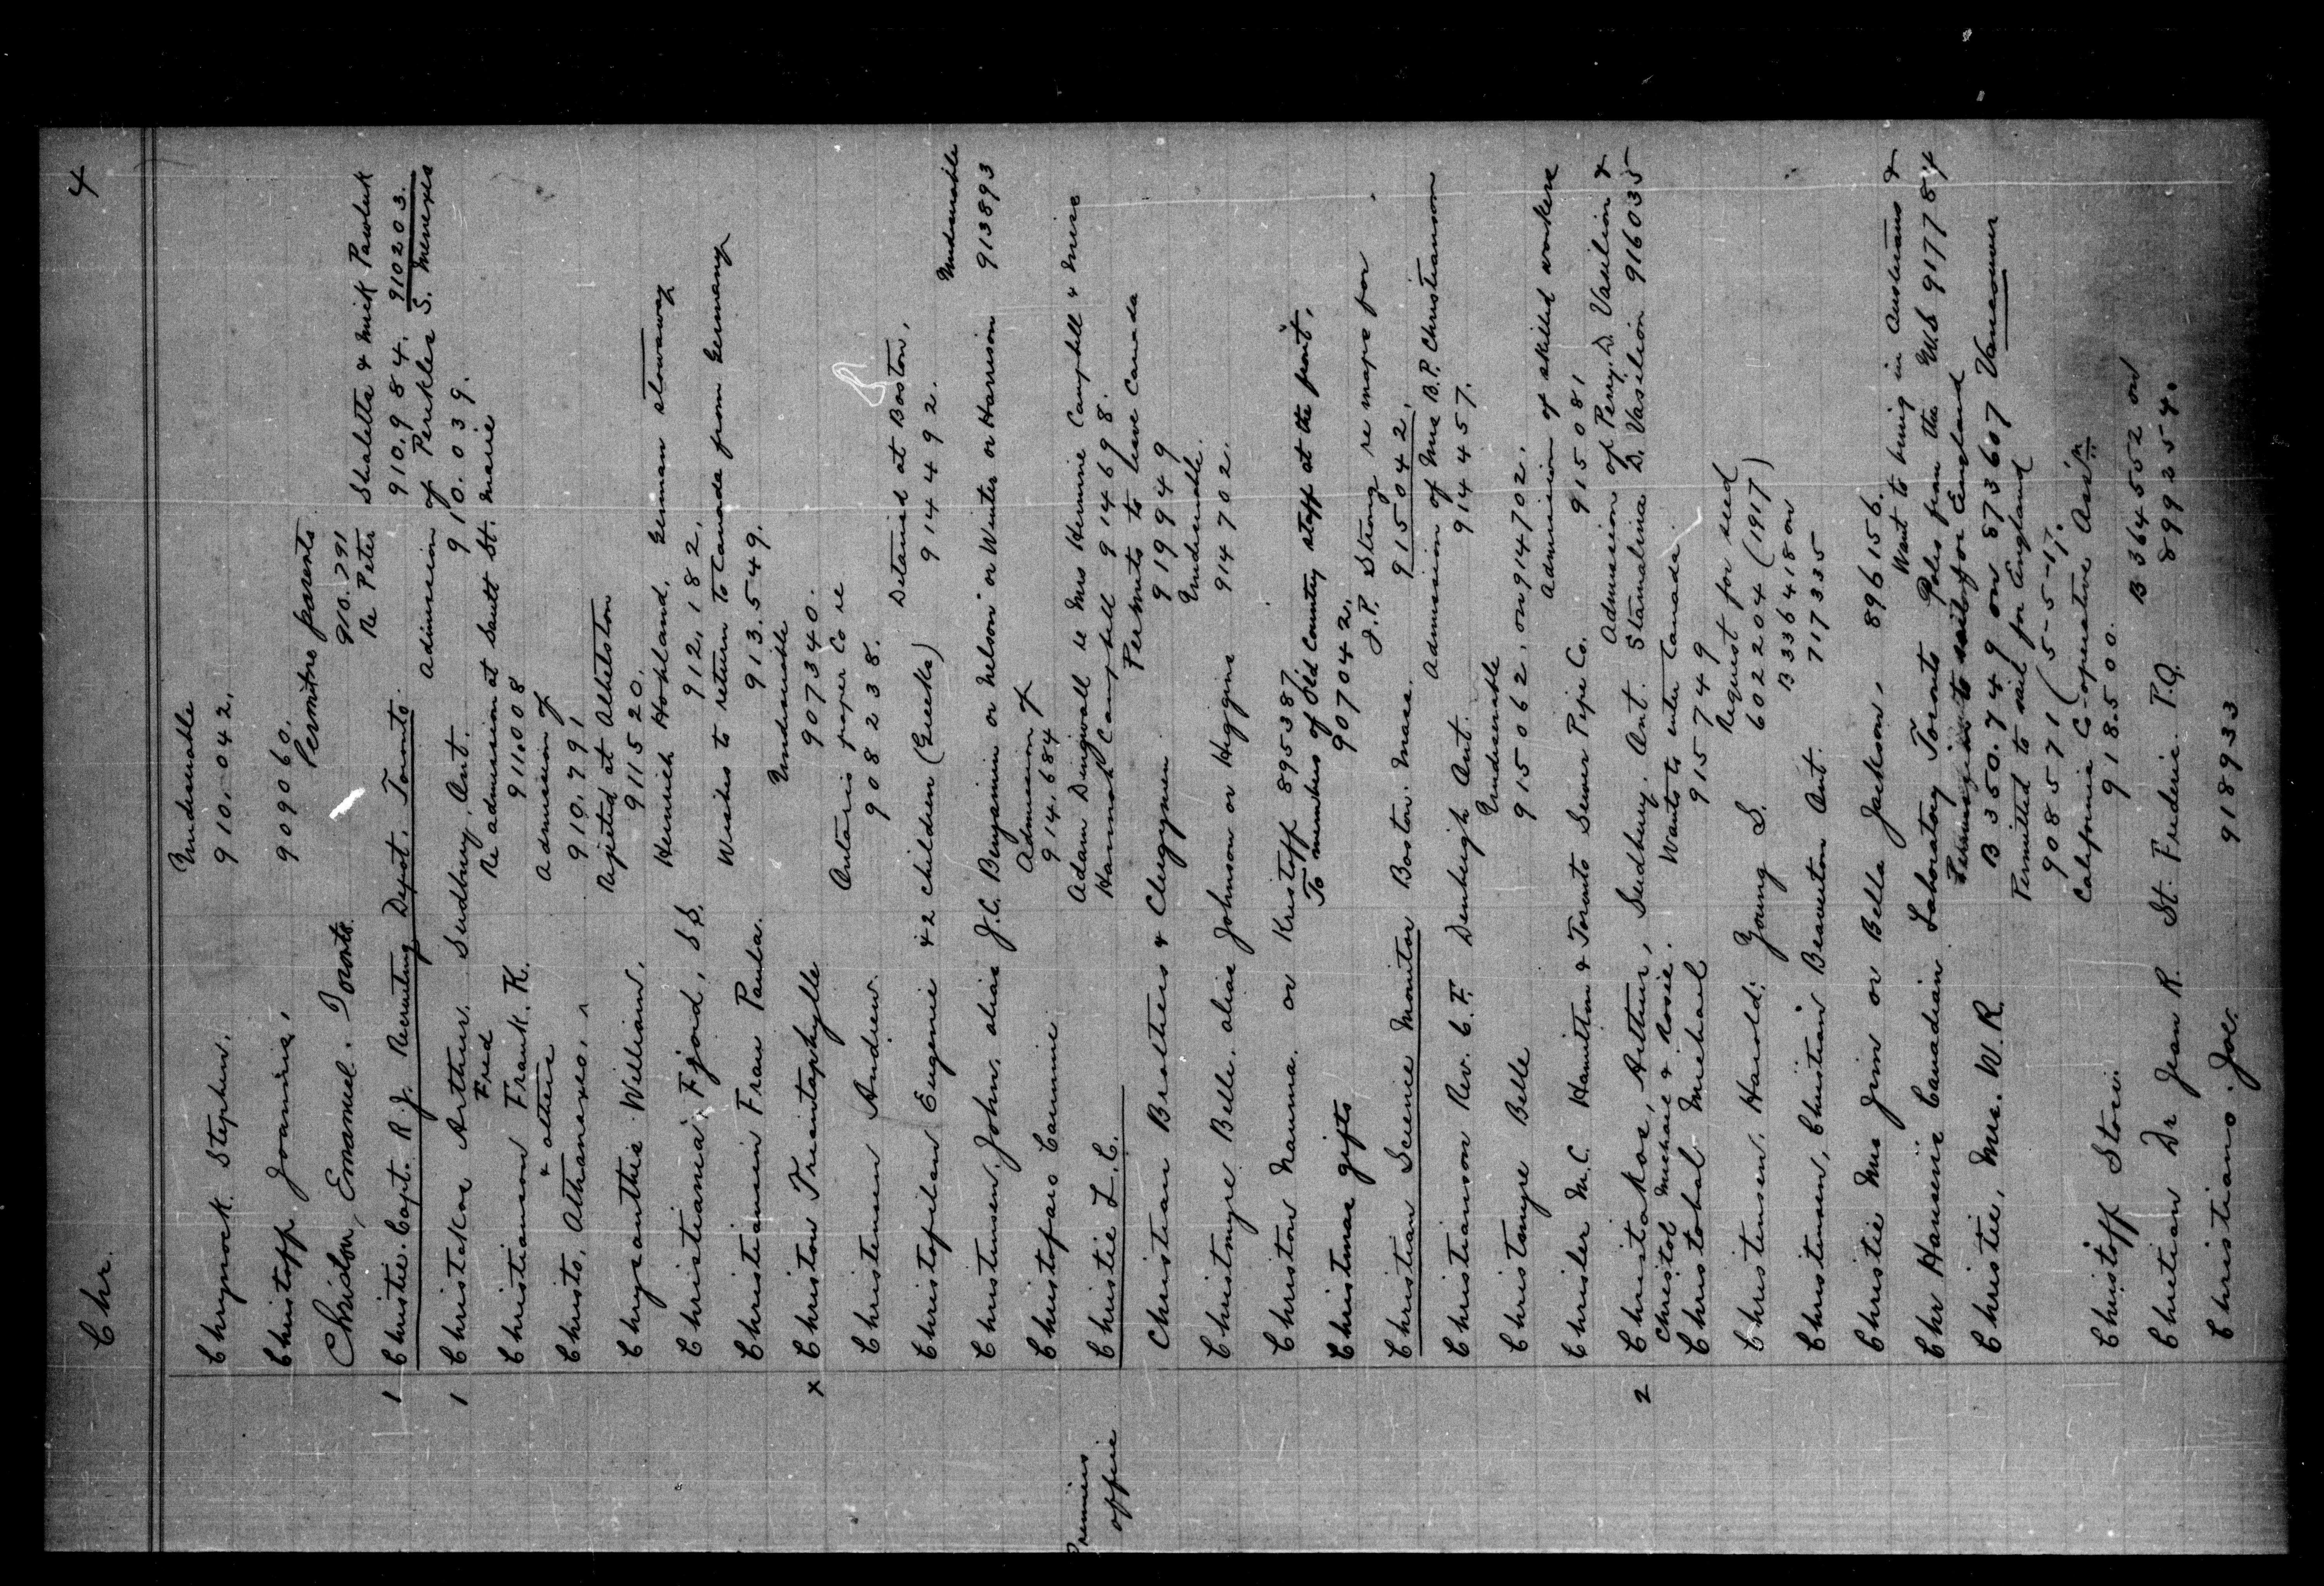 Chr. 4
Undesirable
Chrynock. Stephen. 910.042.
Christoff, Joannis, 909060.
Permit re parents
Christon, Emanuel. Toronto. 910.791
Re Peter Shaletta & Mick Pawluk
1 Christie. Capt. R. J. Recruiting Depot. Toronto. 910.984. 910203.
Admission of Perikles S. Menexes
1 Christakos Arthur. Sudbury. Ont. 910.039.
Fred Re admission at Sault St. Marie
Christianson Frank. K. 911.008
& others Admission of
Christo, Athanasxo, 910.791
Rejected at Athelston
Chrysanthis William, 911520.
Heinrich Hohland, German stowaway
Christianea, Fjord, S.S. 912.182.
Wishes to return to Canada from Germany
Christiansen Frau Paula. 913.549.
Undesirable
x Christou Triantaphylle 907340.
Ontario paper Co re
Christensen Andrew. 908238.
Detained at Boston.
Christofilan Eugenie & 2 children (Greeks) 914492.
Undesirable
Christensen, John, alias J.C. Benjamin or Nelson or Winter or Harrison 913893
Admission of
Christofaro Carmine 914.684
Adam Dingwall re Mrs Hermine Campbell & niece
Premiers office Christie L.C. Hannah Campbell 914698.
Permits to leave Canada
Christian Brothers & Clergymen 919949
Undesirable.
Christmyre Belle, alias Johnson or Higgins 914702.
Christou Naumna. or Kristoff 895387.
To members of Old Country staff at the front,
Christmas gifts 907042.
J.P. Strong re maps for
Christian Science Monitor Boston. Mass. 915042.
Admission of Mrs B.P. Christianson
Christianson Rev. C.F. Denbigh Ont. 914457.
Undesirable
Christmyre Belle 915062, on 914702.
Admission of skilled workers
Chrisler M.C. Hamilton & Toronto Sewer Pipe Co. 915081
Admission of Perry D. Vasilion &
2 Christakos, Arthur, Sudbury. Ont. Stamalina D. Vasilion 916035
Christol Michael & Rosie. Wants to enter Canada.
Christobal Michael 915749
Request for seed
Christensen, Harold; Young S. 602204 (1917)
B336418 on
Christensen, Christian Beaverton Ont. 717335
Christie Mrs Jim or Bella Jackson, 896156.
Want to bring in Austrians &
Chr Hansens Canadian Laboratory Toronto Poles from the U.S 917754
Christie, Mrs. W.R. B350.749 on 873607 Vancouver
Permitted to sail for England
908571 (5-5-17.
California Co-operative Assn
Christoff Stoee. 918.500.
B364552 on
Chretien Dr Jean R. St. Frederic P.Q. 899254.
Christiano. Joe. 918933